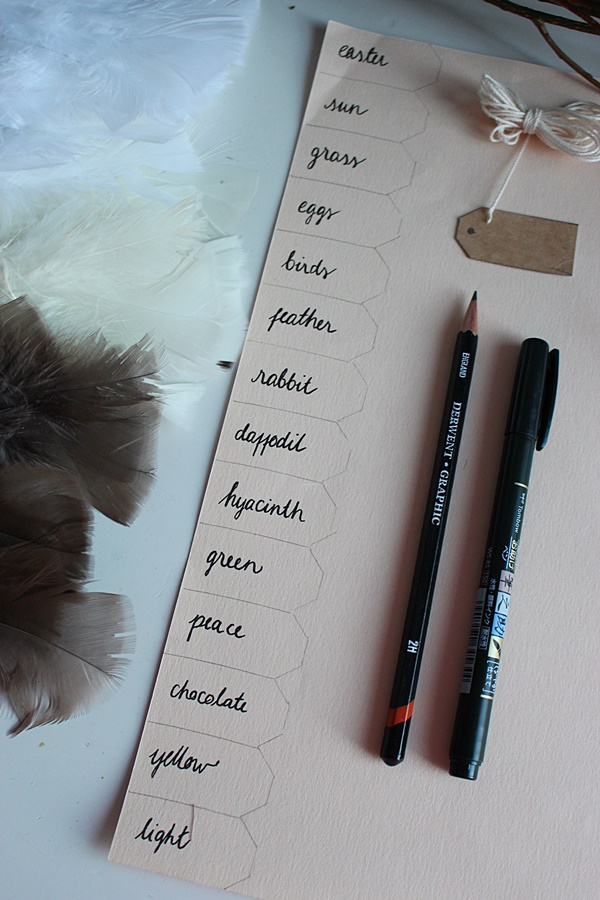 easter
sun
grass
eggs
birds
feather
rabbit
daffodil
hyacinth
green
peace
chocolate
yellow
light
ENGLAND
DERWENT • GRAPHIC
2H
Tombow